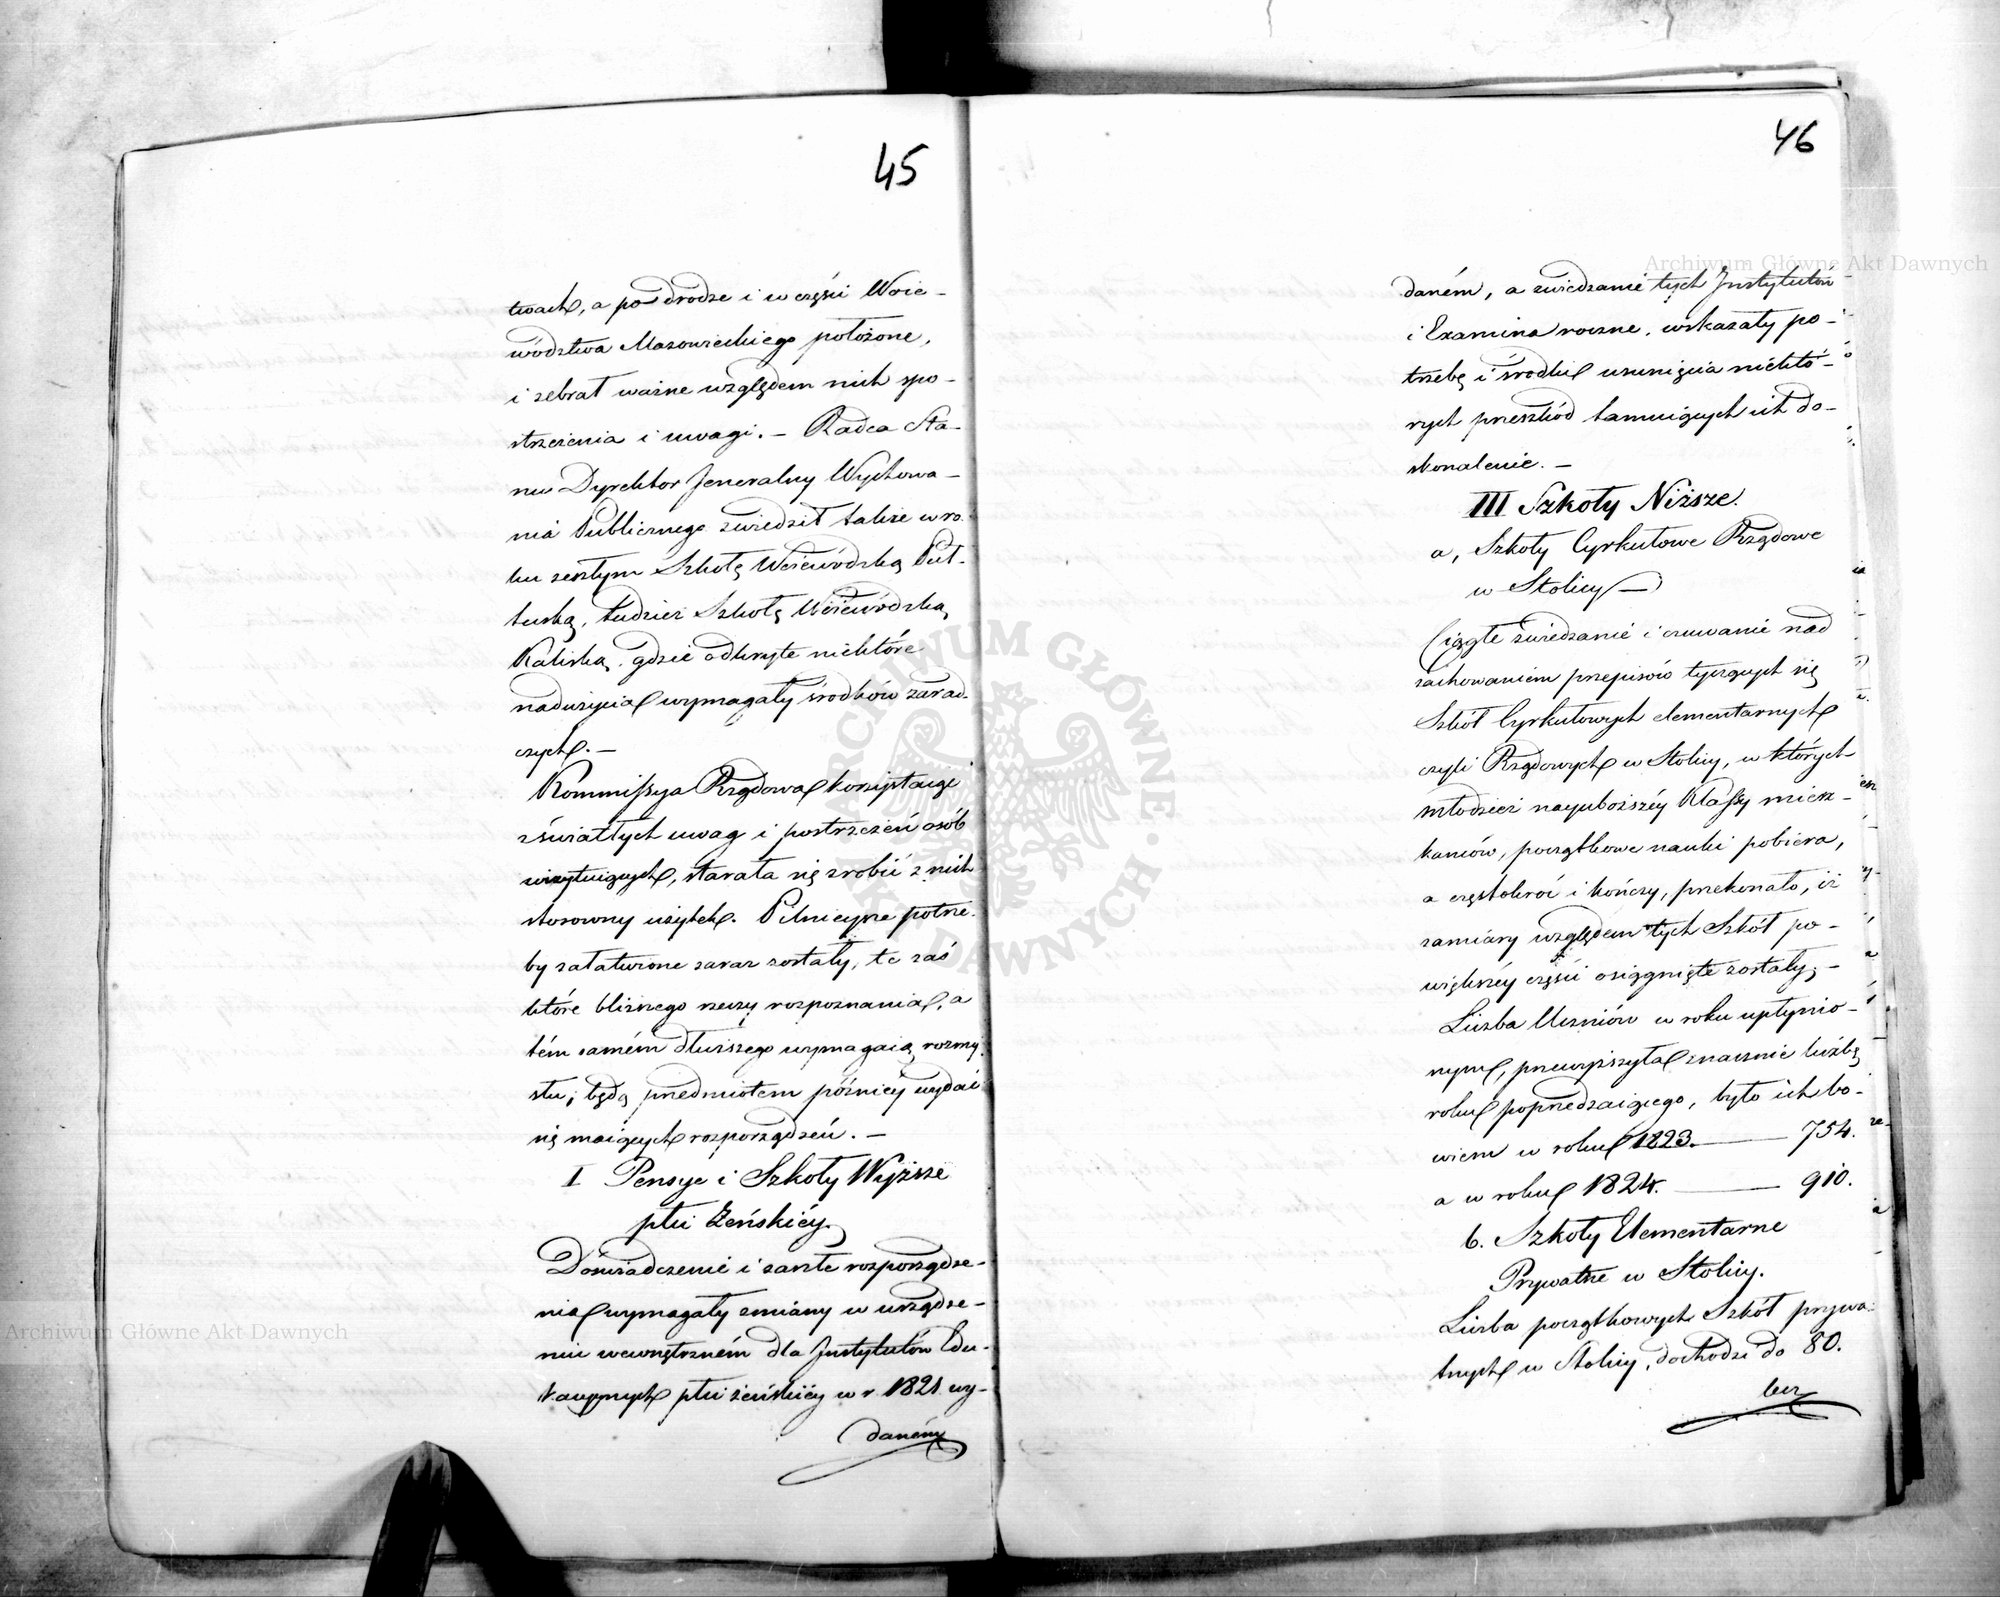 45
twach, a po drodze i w części Woie-
wództwa Mazowieckiego położone,
i zebrał ważne względem nich spo-
strzeżenia i uwagi. – Radca Sta-
nu Dyrektor Jeneralny Wychowa-
nia Publicznego zwiedził także w ro-
ku zeszłym Szkołę Woiewódzką Puł-
tuską, tudzież Szkołę Woiewódzką
Kaliską, gdzie odkryte niektóre
nadużycia wymagały środków zarad-
czych. –
Kommissya Rządowa korzystaiąc
z światłych uwag i postrzeżeń osób
wizytuiących, starała się zrobić z nich
stosowny użytek. Pilnieysze potrze-
by załatwione zaraz zostały, te zaś
które bliższego rzeczy rozpoznania, a
tém samém dłuższego wymagaią rozmy-
słu, będą przedmiotem późniéy wydać
się maiących rozporządzeń. –
I Pensye i Szkoły Wyższe
płci Żeńskiéy.
Doświadczenie i zaszłe rozporządze-
nia wymagały zmiany w urządze-
niu wewnętrzném dla Instytutów Edu-
kacyjnych płci żeńskiéy w r. 1821 wy-
daném
46
daném, a zwiedzanie tych Instytutów
i Examina roczne, wskazały po-
trzebę i środki usunięcia niektó-
rych przeszkód tamuiących ich do-
skonalenie. –
III Szkoły Niższe.
a, Szkoły Cyrkułowe Rządowe
w Stolicy –
Ciągłe zwiedzanie i czuwanie nad
zachowaniem przepisów tyczących się
Szkół Cyrkułowych elementarnych
czyli Rządowych w Stolicy, w których
młodzież nayuboższéy Klassy miesz-
kańców, początkowe nauki pobiera,
a częstokroć i kończy, przekonało, iż
zamiary względem tych Szkół po-
większéy części osiągnięte zostały; –
Liczba Uczniów w roku upłynio-
nym, przewyższyła znacznie liczbę
roku poprzedzaiącego, było ich bo-
wiem w roku 1823. — 754.
a w roku 1824. — 910.
b. Szkoły Elementarne
Prywatne w Stolicy.
Liczba początkowych Szkół prywa-
tnych w Stolicy, dochodzi do 80.
lecz
Archiwum Główne Akt Dawnych
Archiwum Główne Akt Dawnych
ARCHIWUM GŁÓWNE AKT DAWNYCH